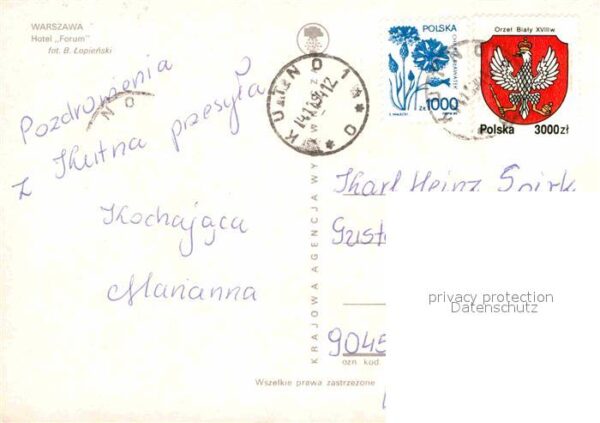 WARSZAWA
Hotel „Forum"
fot. B. Łopieński
Pozdrowienia
z Kutna przesyła
Kochająca
Marianna
KUTNO 1
POLSKA
zł 1000
Orzeł Biały XVIII w
Polska 3000zł
KRAJOWA AGENCJA WY
Karl Heinz
9045
ozn. kod.
Wszelkie prawa zastrzeżone
privacy protection
Datenschutz